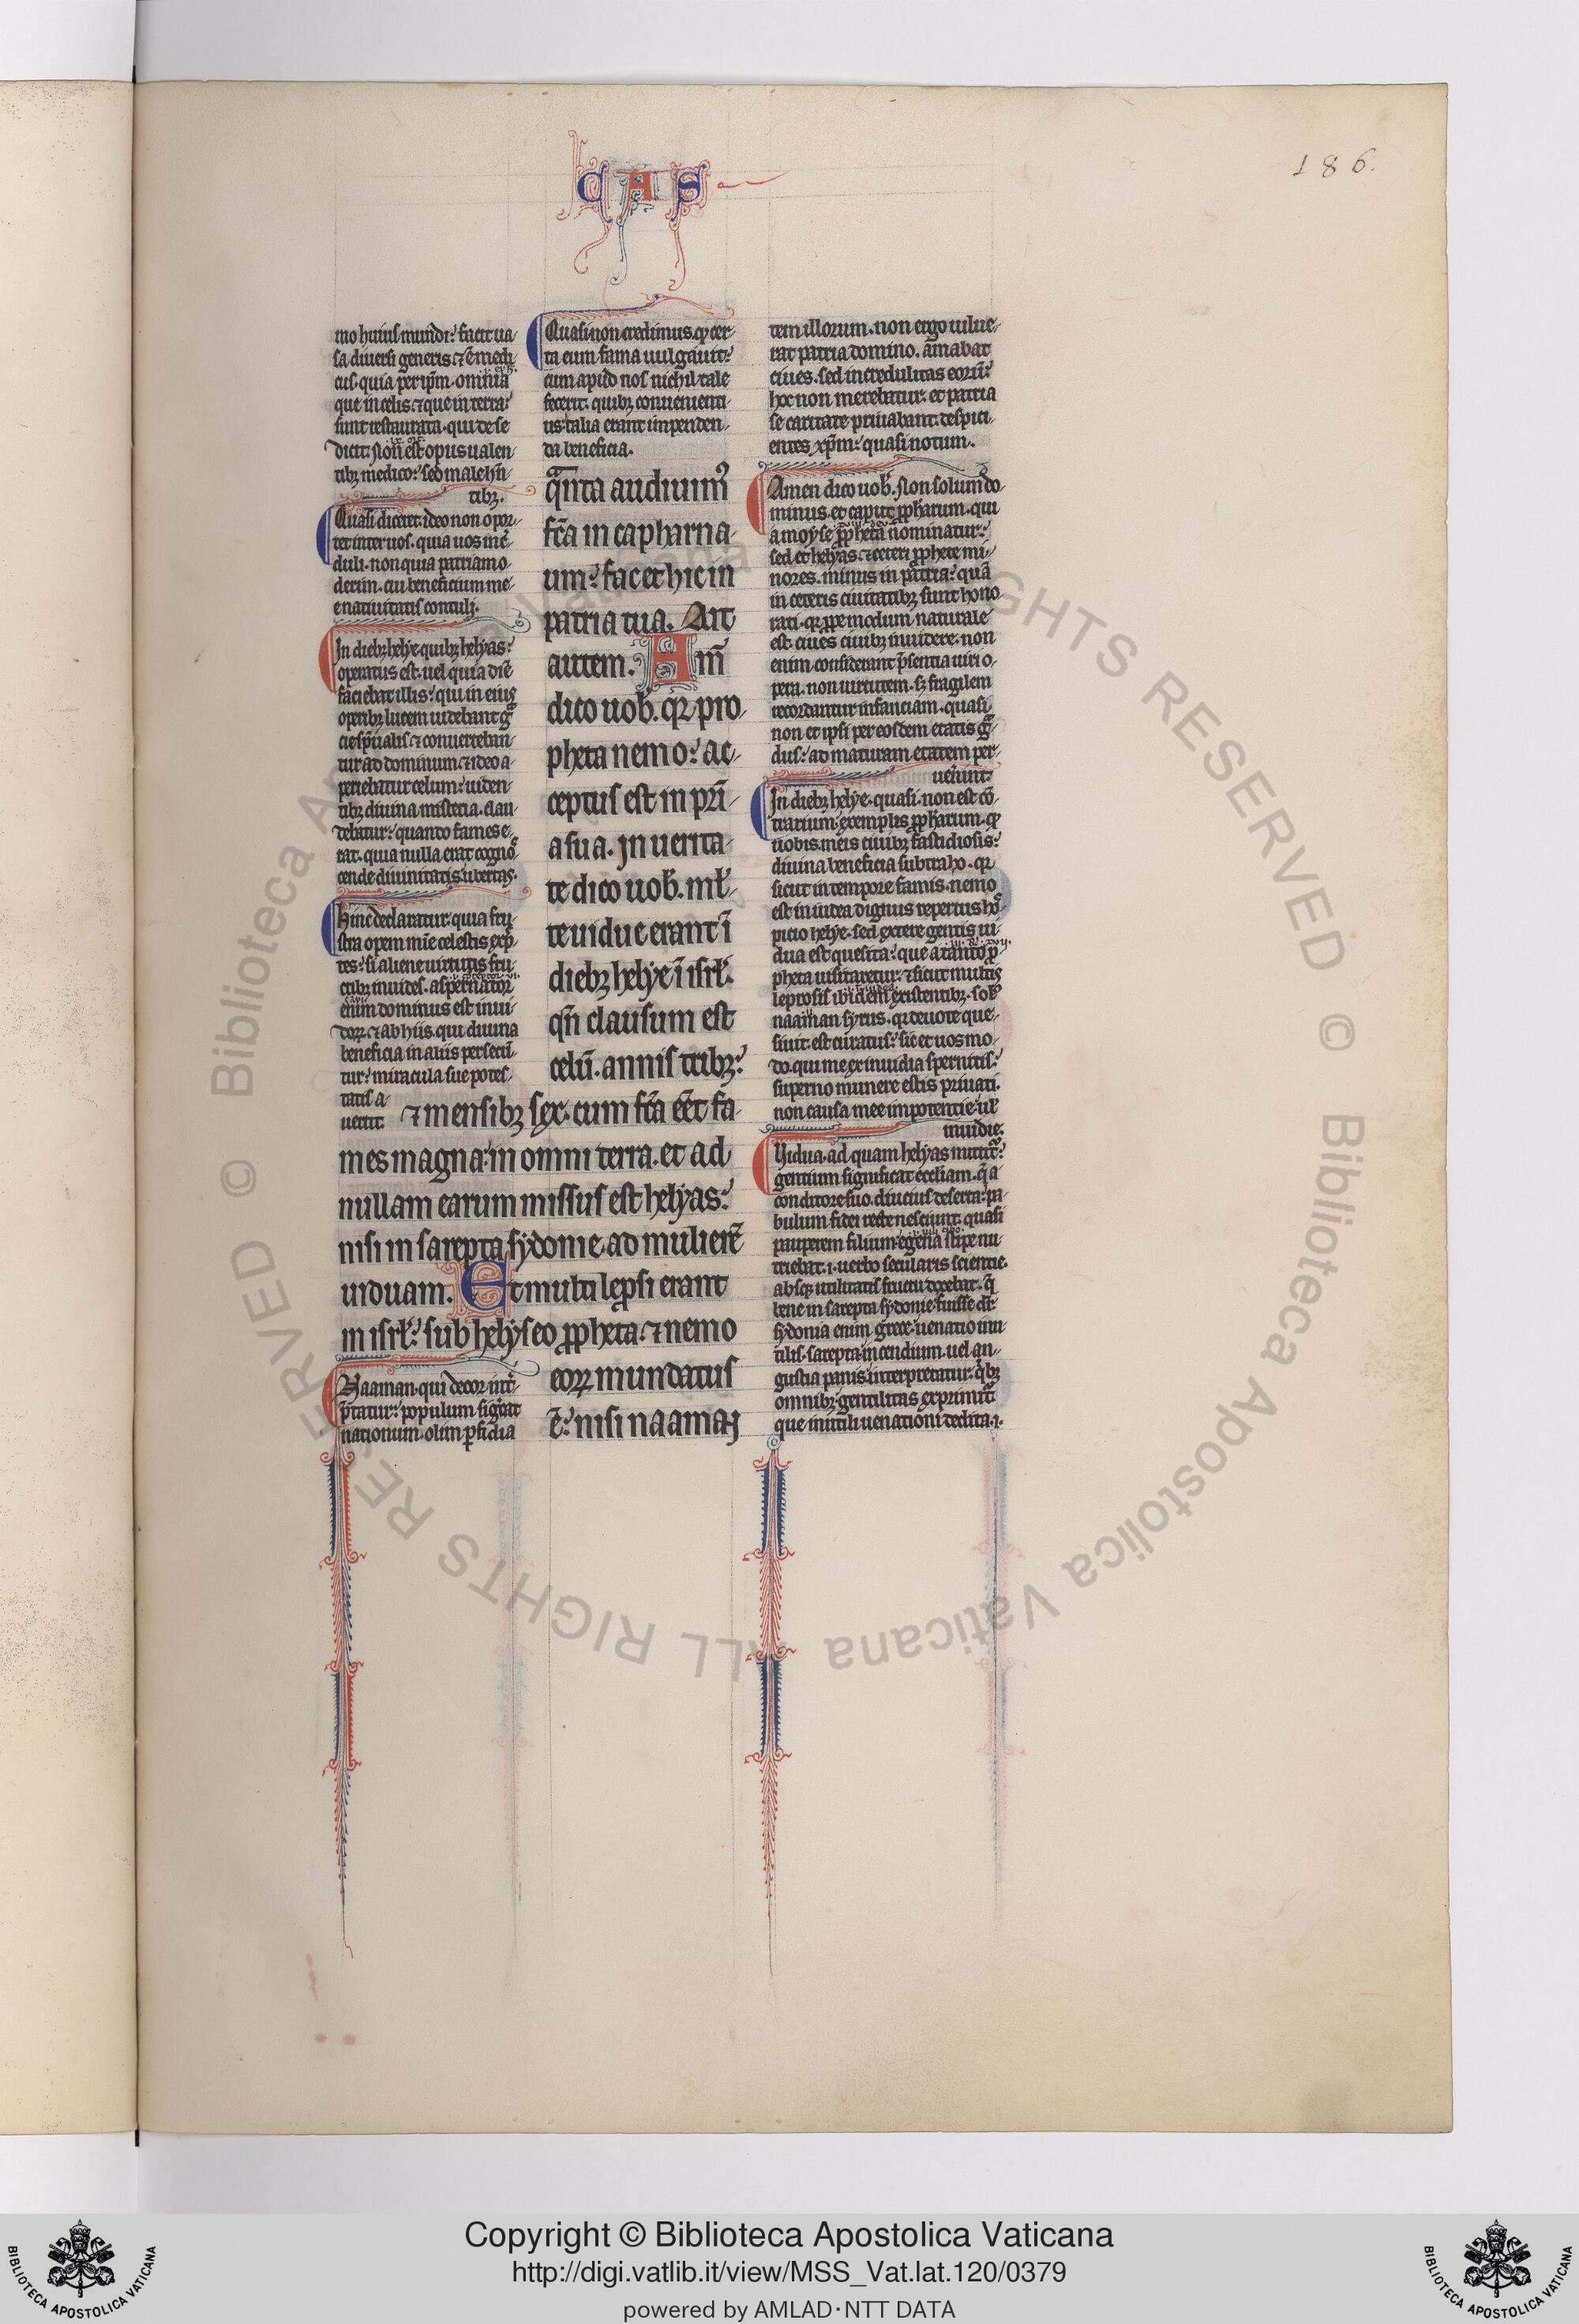 CAS
186.
mo huius mundi: facit ua-
sa diuersi generis. ⁊ ē medi-
cus quia per ip̄m omnia
que in celis ⁊ que in terra
sunt restaurata. qui de se
dicit. Non est opus ualen-
tibꝫ medico: sed male hn̄-
tibꝫ.
Quasi diceret. ideo non opor-
tet inter uos. quia uos incre-
duli. non quia patriam o-
derim. cui beneficium me-
e natiuitatis contuli.
In diebꝫ helye quibꝫ helyas
operatus est. uel quia diē
faciebat illis: qui in eius
operibꝫ lucem uidebant
spūalis. ⁊ conuerteban-
tur ad dominum. ⁊ ideo a-
periebatur celum: uiden-
tibꝫ diuina misteria. clau-
debatur: quando fames e-
rat. quia nulla erat cogno-
cende diuinitatis ubertas.
Hinc declaratur quia fru-
stra opem mīe celestis exp̄-
tes: si aliene uirtutis fru-
ctibꝫ inuides. aspernator
enim dominus est inui-
doꝝ. ⁊ ab hiis. qui diuina
beneficia in aliis persecū-
tur: miracula sue potes-
tatis a-
uertit.
Quasi non credimus. ꝙ cer-
ta eum fama uulgauit:
cum apud nos nichil tale
fecerit. quibꝫ conuenienti-
us talia erant impenden-
da beneficia.
qn̄ta audiuim᾿
fc̄a in capharna-
um: fac et hic in
patria tua. Ait
autem. Am̄
dico uob̄. qꝛ pro-
pheta nemo: ac-
ceptus est in pr̄i-
a sua. In uerita-
te dico uob̄. ml̄-
te uidue erant ī
diebꝫ helye ī isrl̄.
qn̄ clausum est
celū. annis tribꝫ:
⁊ mensibꝫ sex. cum fc̄a eēt fa-
mes magna in omni terra. et ad
nullam earum missus est helyas:
nisi in sarepta sydonie. ad mulierē
uiduam. Et multi lep̄si erant
in isrl̄: sub helyseo ꝓpheta. ⁊ nemo
eoꝝ mundatus
ē: nisi naaman
Naaman. qui decor int̄-
p̄tatur: populum siḡat
nationum. olim ꝑfidia
tem illorum. non ergo uilue-
rat patria domino. amabat
ciues. sed incredulitas eorū:
hoc non merebatur. et patria
se caritate priuabant. despici-
entes xp̄m: quasi notum.
Amen dico uob̄. Non solum do-
minus. et caput ꝓphetarum. qui
a moyse ꝓpheta nominatur:
sed et helyas. ⁊ ceteri ꝓphete mi-
nores. minus in patria: quā
in ceteris ciuitatibꝫ sunt hono
rati. qꝛ ꝓpemodum naturale
est ciues ciuibꝫ inuidere. non
enim considerant p̄sentia uiri o-
pera. non uirtutem. sꝫ fragilem
recordantur infanciam. quasi
non et ipsi per eosdem etatis g̃-
dus: ad maturam etatem per-
uenerint.
In diebꝫ helye. quasi. non est cō-
trarium. exemplis ꝓphetarum. ꝙ
uobis meis ciuibꝫ fastidiosis:
diuina beneficia subtraho. qꝛ
sicut in tempore famis. nemo
est in iudea dignus repertus hos-
picio helye. sed extere gentis ui-
dua est quesita: que a tanto ꝓ-
pheta uisitaretur. ⁊ sicut multis
leprosis ibidem existentibꝫ. sol᾿
naaman syrus. qꝛ deuote que-
siuit. est curatus: sic et uos mo-
do. qui me ex inuidia spernitis:
superno munere estis priuati.
non causa mee impotentie. ul᾿
inuidie.
Uidua. ad quam helyas mittit᾿:
gentium significat eccl̄iam. q̄ a
conditore suo. diucius deserta. pa-
bulum fidei recte nesciunt. quasi
pauperem filium. egena stipe nu-
triebat. i. uerbo secularis scientie.
absqꝫ utilitatis fructu docebat. q̄
bene in sarepta sydonie. fuisse dr̄.
sydonia enim grece. uenatio inu-
tilis. sarepta incendium. uel an-
gustia panis interpretatur. qᵇꝫ
omnibꝫ gentilitas exprimit᾿
que inutili uenationi dedita. i.
Copyright © Biblioteca Apostolica Vaticana
http://digi.vatlib.it/view/MSS_Vat.lat.120/0379
powered by AMLAD·NTT DATA